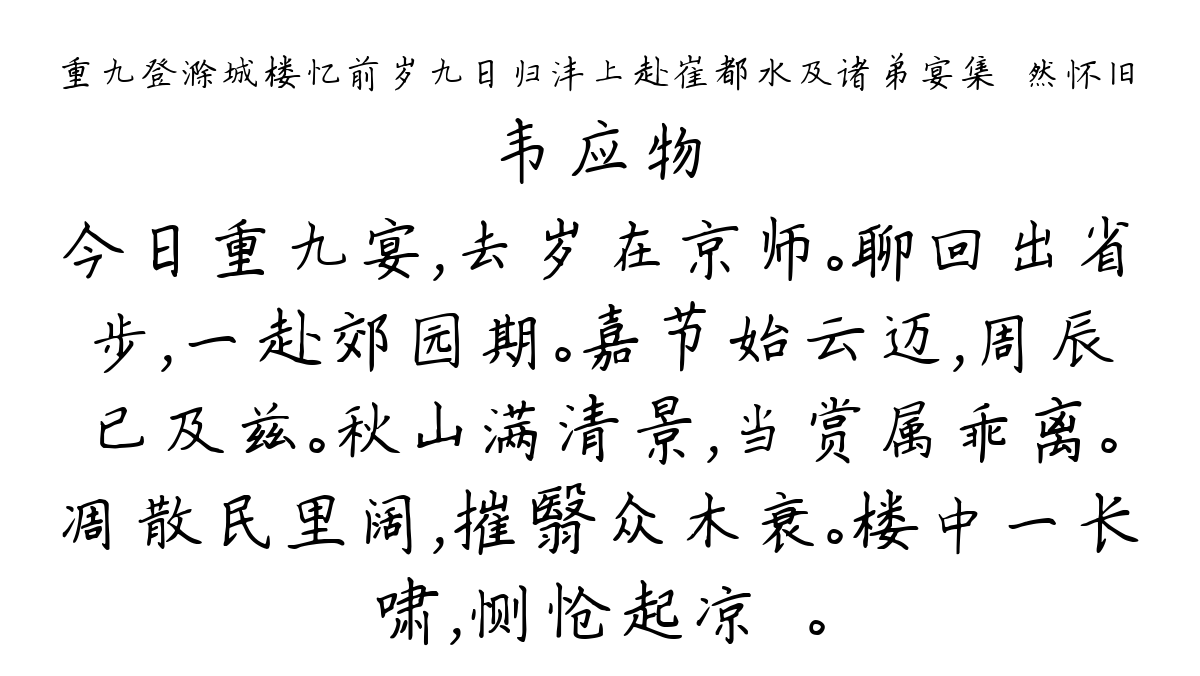 重九登滁城楼忆前岁九日归沣上赴崔都水及诸弟宴集 然怀旧
韦应物
今日重九宴,去岁在京师。聊回出省
步,一赴郊园期。嘉节始云迈,周辰
已及兹。秋山满清景,当赏属乖离。
凋散民里阔,摧翳众木衰。楼中一长
啸,恻怆起凉 。